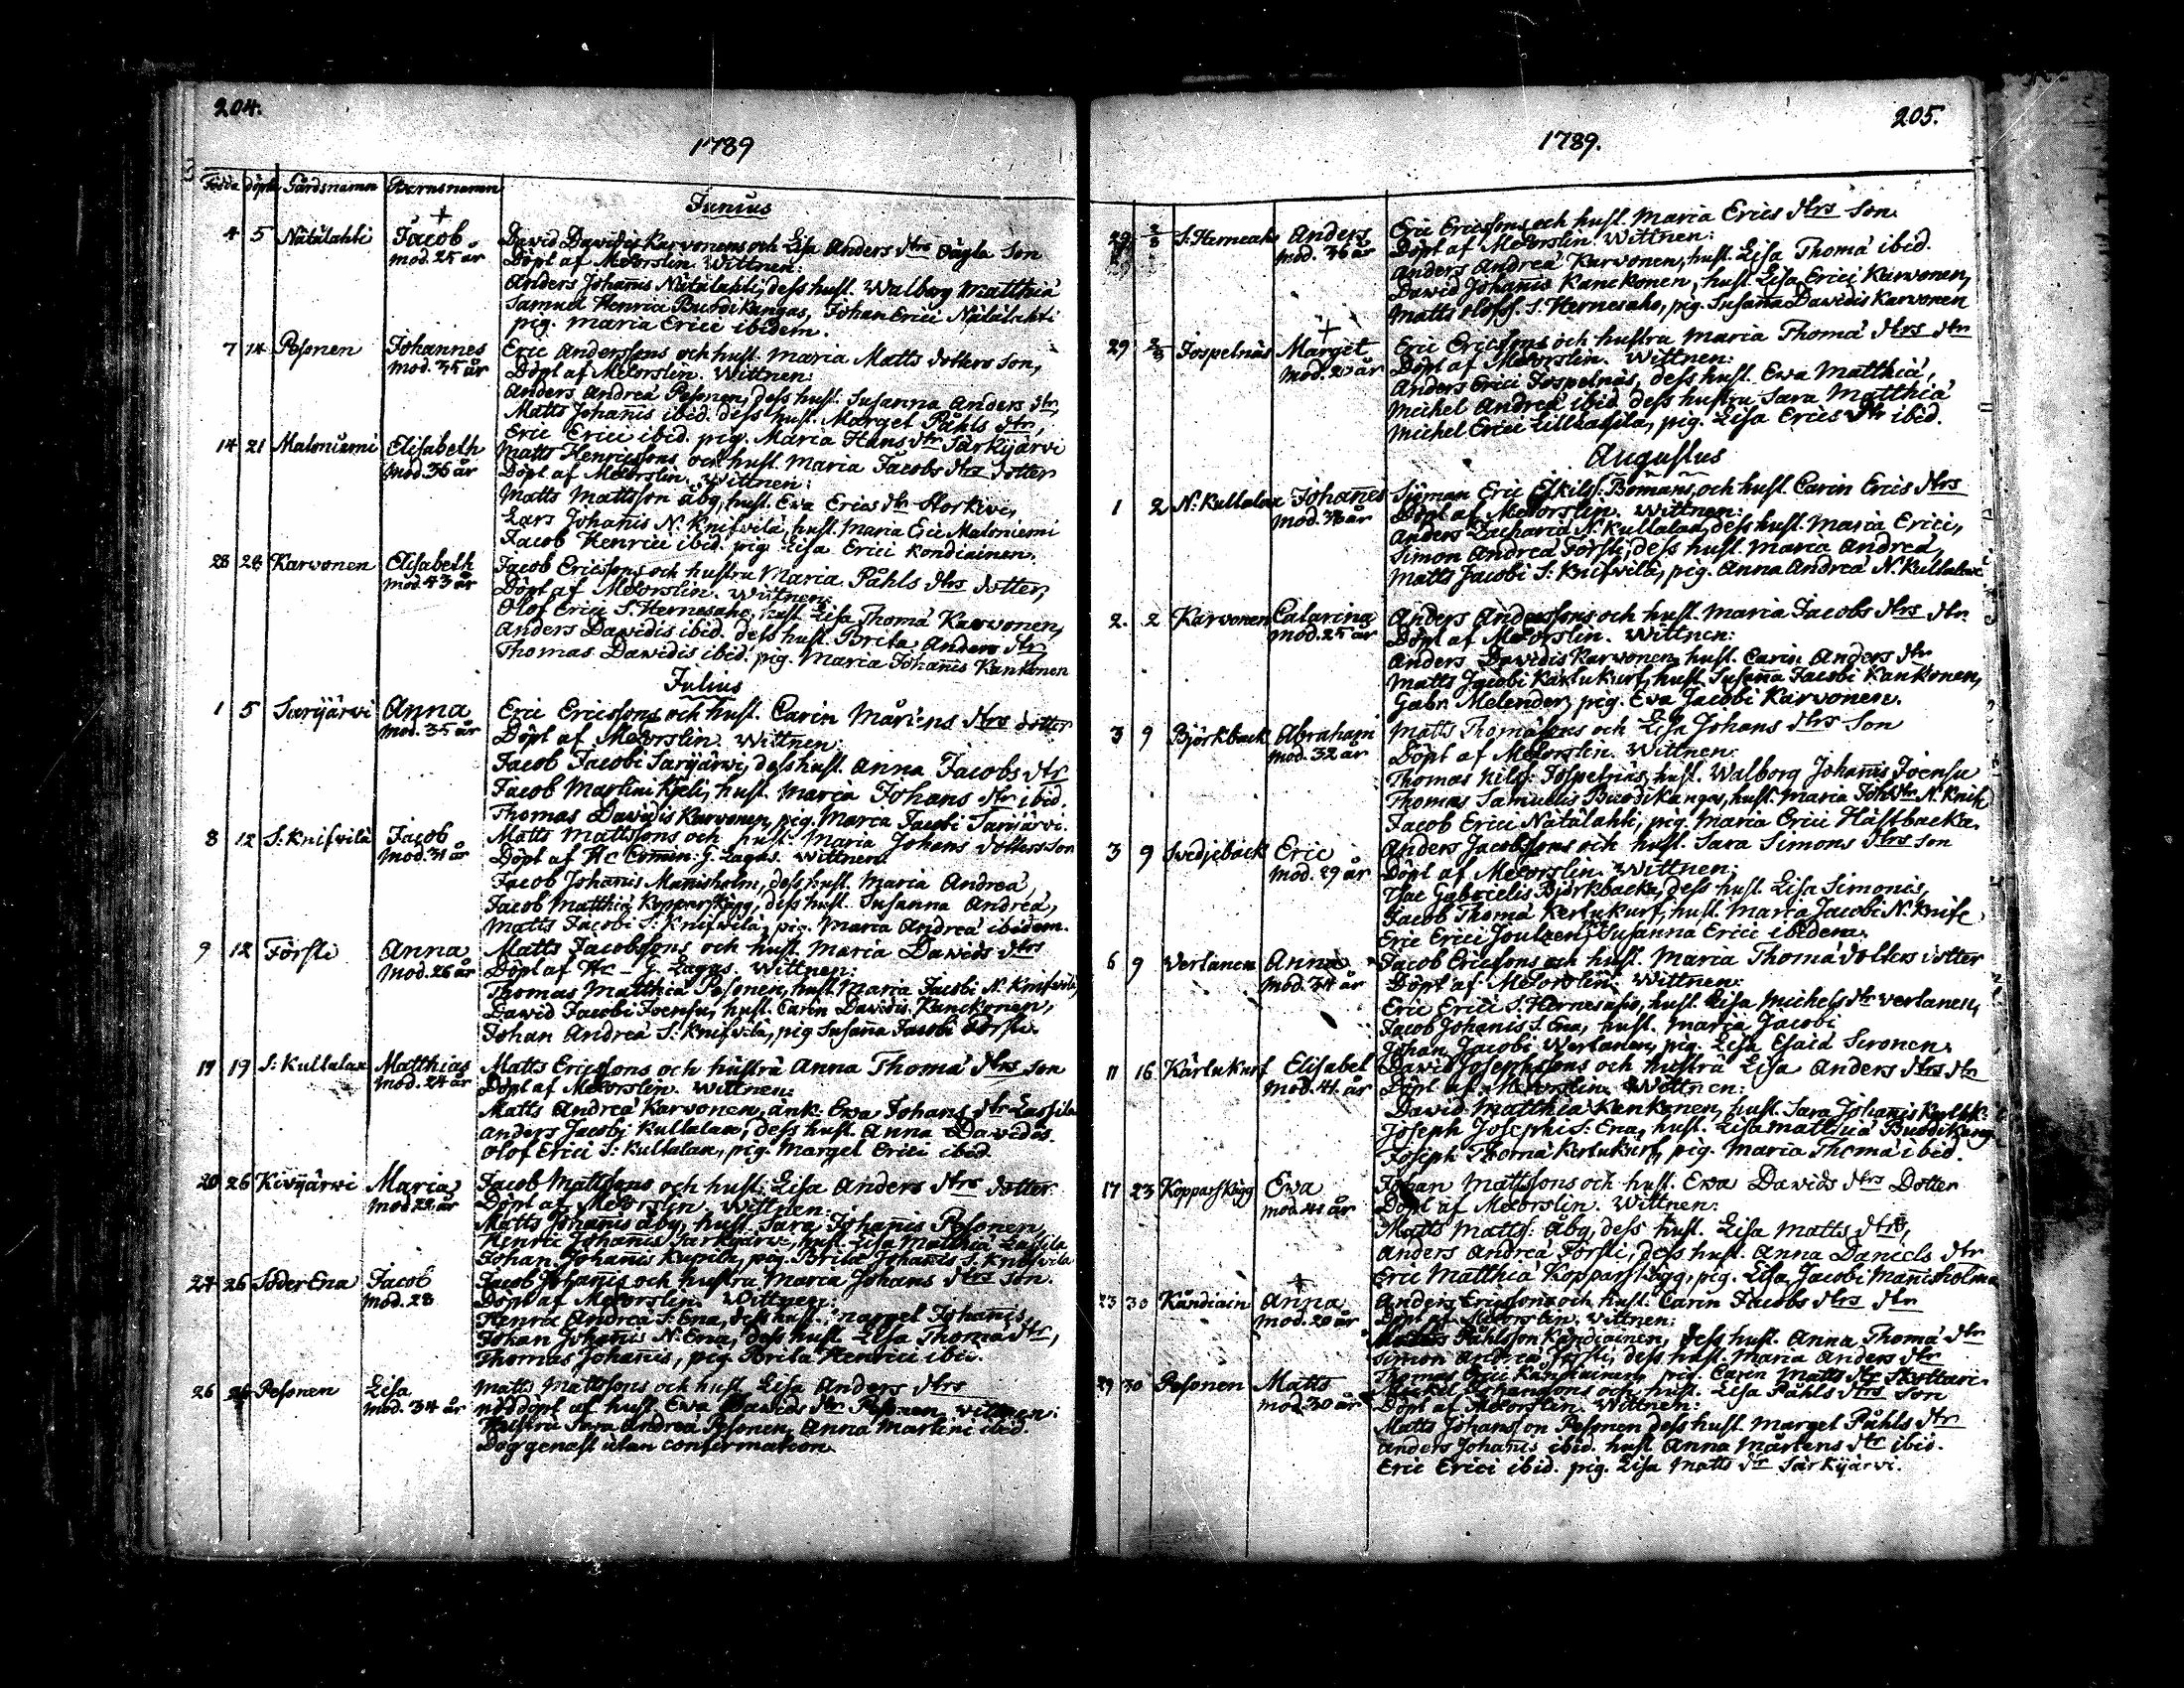 204.
1789
Födde döpte Gårdsnamn Barnsnamn
Junius
4 5 Nätälahti Jacob mod. 25 år
David Davidis Karvonens och Lisa Anders dtrs son
Döpt af McTorslin. Wittnen:
Anders Johanis Nätälahti, dess hust. Walborg Matthiä
Samuel Henrici Buodikangas, Johan Erici Nätälahti
pig. Maria Erici ibidem.
7 14 Pesonen Johannes mod. 35 år
Eric Anderssons och hust. Maria Matts dotters son,
Döpt af McTorslin. Wittnen:
Anders Andreä Pesonen, dess hust. Susanna Anders dtr,
Matts Johanis ibid. dess hust. Marget Påhls dtr,
Eric Erici ibid. pig. Maria Hans dtr Särkijärvi
14 21 Maloniemi Elisabeth mod. 36 år
Matts Henricssons och hust. Maria Jacobs dtrs dotter
Döpt af McTorslin. Wittnen:
Matts Mattsson åbg, hust. Eva Erics dtr Storkivi,
Lars Johanis N. Knifvilä, hust. Maria Eric Maloniemi
Jacob Henrici ibid. pig. Lisa Erici Kondiainen.
28 28 Karvonen Elisabeth mod. 43 år
Jacob Ericssons och hustru Maria Påhls dtrs dotter,
Döpt af McTorslin. Wittnen:
Olof Erici S. Hernesaho, hust. Lisa Thomä Karvonen,
Anders Davidis ibid. dess hust. Brita Anders dtr
Thomas Davidis ibid. pig. Maria Johanis Kankonen
Julius
1 5 Sarijärvi Anna mod. 35 år
Eric Ericssons och hust. Carin Mårtens dtrs dotter
Döpt af McTorslin. Wittnen:
Jacob Jacobi Sarijärvi, dess hust. Anna Jacobs dtr
Jacob Martini Kjeli, hust. Maria Johans dtr ibid.
Thomas Davidis Karvonen, pig. Maria Jacobi Sarijärvi.
8 12 S. Knifvilä Jacob mod. 31 år
Matts Mattssons och hust. Maria Johans dotters son
Döpt af Hc Comin: G. Lagus. Wittnen:
Jacob Johannis Manisholm, dess hust. Maria Andreä,
Jacob Matthiä Kopparskägg, dess hust. Susanna Andreä,
Matts Jacobi S: Knifvilä, pig. Maria Andreä ibidem.
9 12 Försti Anna mod. 26 år
Matts Jacobssons och hust. Maria Davids dtrs
Döpt af Hc G. Lagus. Wittnen:
Thomas Matthiä Pesonen, hust. Maria Jacobi N. Knifvilä
David Jacobi Joensu, hust. Carin Davidis Kanckonen,
Johan Andreä S. Knifvilä, pig Susana Jacobi Försti.
19 19 S: Kullalax Matthias mod. 24 år
Matts Ericssons och hustru Anna Thomä dtrs son
Döpt af McTorslin. Wittnen:
Matts Andreä Karvonen, ank. Eva Johans dtr Lassila
Anders Jacobi Kullalax, dess hust. Anna Davidis.
Olof Erici S: Kullalax, pig. Marget Erici ibid.
20 26 Kivijärvi Maria mod 22 år
Jacob Mattsons och hust. Lisa Anders dtrs dotter
Döpt af McTorslin Wittnen:
Matts Johanis åbg, hust. Sara Johanis Pesonen
Henric Johanis Särkijärvi, hust. Lisa Matthiä Lassila
Johan Johanis Kupila, pig. Brita Johanis S. Knifvilä
24 26 Söder Ena Jacob mod. 28
Jacob Johanis och hustru Maria Johans dtrs son.
Döpt af McTorslin. Wittnen:
Henric Andreä S: Ena, dess hust. Marget Johanis,
Johan Johanis N. Ena, dess hust Lisa Thomä dtr,
Thomas Johanis, pig. Brita Henrici ibid.
26 26 Pesonen Lisa mod. 34 år
Matts Mattssons och hust. Lisa Anders dtrs
nöddöpt af hust. Eva Davids dtr Pesonen. Wittnen:
Hustru Sara Andreä Pesonen, Anna Martini ibid.
Dog genast utan confirmation.
205.
1789.
29 2/8 S: Hernesaho Anders mod. 36 år
Eric Ericssons och hust. Maria Erics dtrs son.
Döpt af McTorslin. Wittnen:
Anders Andreä Karvonen, hust. Lisa Thomä ibid.
David Johanis Kanckonen, hust. Lisa Erici Karvonen,
Matts Olofs. S. Hernesaho, pig. Susana Davidis Karvonen
29 2/8 Jospelnäs Marget
Eric Ericssons och hustru Maria Thomä dtrs dtr
Döpt af McTorslin. Wittnen:
Anders Erici Jospelnäs, dess hust. Eva Matthiä,
Michel Andreä ibid. dess hustru Sara Matthiä
Michel Erici Lillkassila, pig. Lisa Erics dtr ibid.
Augustus
1 2 N. Kullalax Johanes mod. 38 år
Eric Eskils: Bomans, och hust. Carin Erics dtrs
Döpt af McTorslin. Wittnen:
Anders Zachariä N. Kullalax, dess hust. Maria Erici,
Simon Andreä Försti, dess hust. Maria Andreä,
Matts Jacobi S: Knifvilä, pig. Anna Andreä N. Kullalax
2. 2 Karvonen Catarina mod. 25 år
Anders Anderssons och hust. Maria Jacobs dtrs dtr.
Döpt af McTorslin. Wittnen:
Anders Davidis Karvonen, hust. Carin Anders dtr
Matts Jacobi Kärlukurf, hust. Susana Jacobi Kankonen,
Gabr. Melender, pig. Eva Jacobi Karvonen.
3 9 Björkback Abraham mod. 32 år
Matts Thomäsons och Lisa Johans dtrs son
Döpt af McTorslin. Wittnen:
Thomas Nils: Jospelnäs, hust. Walborg Johanis Joensu
Thomas Samuelis Buodikangas, hust. Maria Joh dtr N. Knif
Jacob Erici Nätälahti, pig. Maria Erici Hästbacka.
3 9 Svedjeback Eric mod. 29 år
Anders Jacobssons och hust. Sara Simons dtrs son
Döpt af McTorslin. Wittnen:
Isac Gabrielis Björkbacka, dess hust. Lisa Simonis,
Jacob Thomä Kerlukurf, hust. Maria Jacobi N. Knif
Eric Erici Joulzen, Susanna Erici ibidem.
6 9 Vertanen Anna mod. 34 år
Jacob Ericssons och hust. Maria Thomä dotters dotter
Döpt af McTorslin. Wittnen:
Eric Erici S. Hernesaho, hust. Lisa Michels dtr Vertanen,
Jacob Johanis S. Ena, hust. Maria Jacobi
Johan Jacobi Vertanen, pig. Lisa Esaiä Sironen.
11 16 Kärlukurf Elisabet mod. 41 år
David Josephssons och hustru Lisa Anders dtrs dtr
Döpt af McTorslin. Wittnen:
David Matthiä Kankonen, hust. Sara Johanis
Joseph Josephi S: Ena, hust. Lisa Matthiä Buodikang
Joseph Thomä Kerlukurf, pig. Maria Thomä ibid.
17 23 Kopparskägg Eva mod. 41 år
Johan Mattssons och hust. Eva Davids dtrs Dotter
Döpt af McTorslin. Wittnen:
Matts Matts: åbg, dess hust. Lisa Matts dtrs,
Anders Andreä Försti, dess hust. Anna Daniels dtr
Eric Matthiä Kopparskägg, pig. Lisa Jacobi Manisholma
23 30 Kåndiain Anna mod. 20 år
Anders Ericssons och hust. Carin Jacobs dtrs dtr
Döpt af McTorslin. Wittnen:
Påhlsson Kåndiainen, dess hust. Anna Thomä dtr
Simon Andreä Försti, dess hust. Maria Anders dtr
Thomas Erici Kåndiainen, pig. Carin Matts dtr Skottari.
29 30 Pesonen Matts mod 30 år
Michel Johanssons och hust. Lisa Påhls dtrs son
Döpt af McTorslin. Wittnen:
Matts Johansson Pesonen dess hust. Marget Påhls dtr
Anders Johanis ibid. hust Anna Mårtens dtr ibid.
Eric Erici ibid. pig. Lisa Matts dtr Särkijärvi.